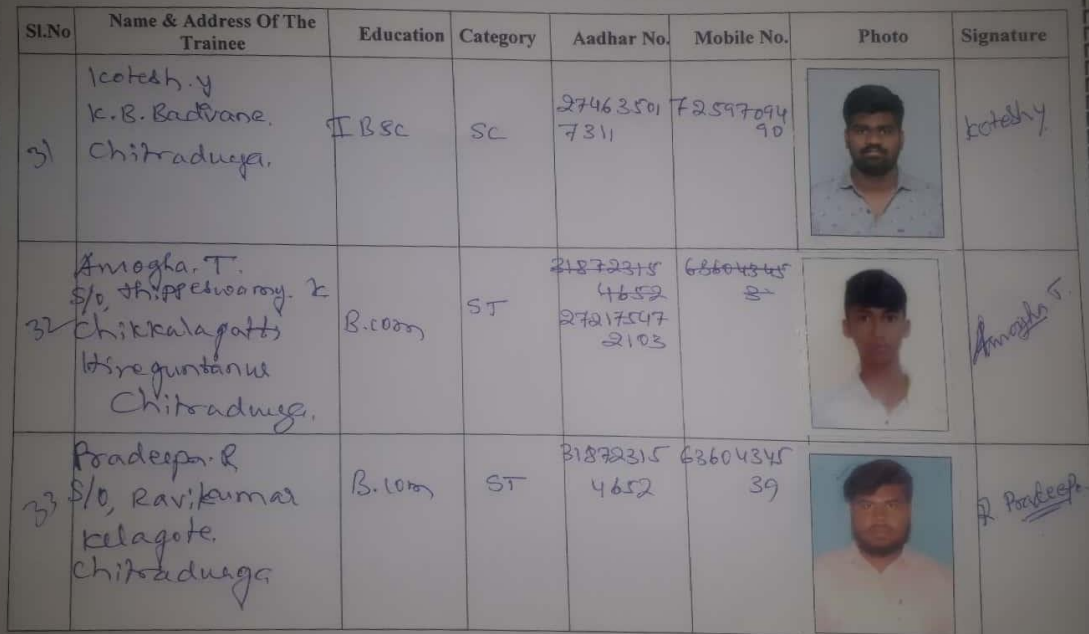 Sl.No Name & Address Of The Trainee Education Category Aadhar No. Mobile No. Photo Signature
31
Kotesh.y
K.B. Badvane.
Chitradurga.
I BSC
SC
27463501
7311
72597094
90
Kotesh y
32
Amogha. T.
S/o, thippeswamy. K
Chikkalagatti
Hireguntanur
Chitradurga.
B.com
ST
31872315
4652
27217547
2103
63604345
3
Amogha T.
33
Pradeepa. R
S/o, Ravikumar
Kelagote.
Chitradurga
B.com
ST
31872315
4652
63604345
39
R Pradeepa.